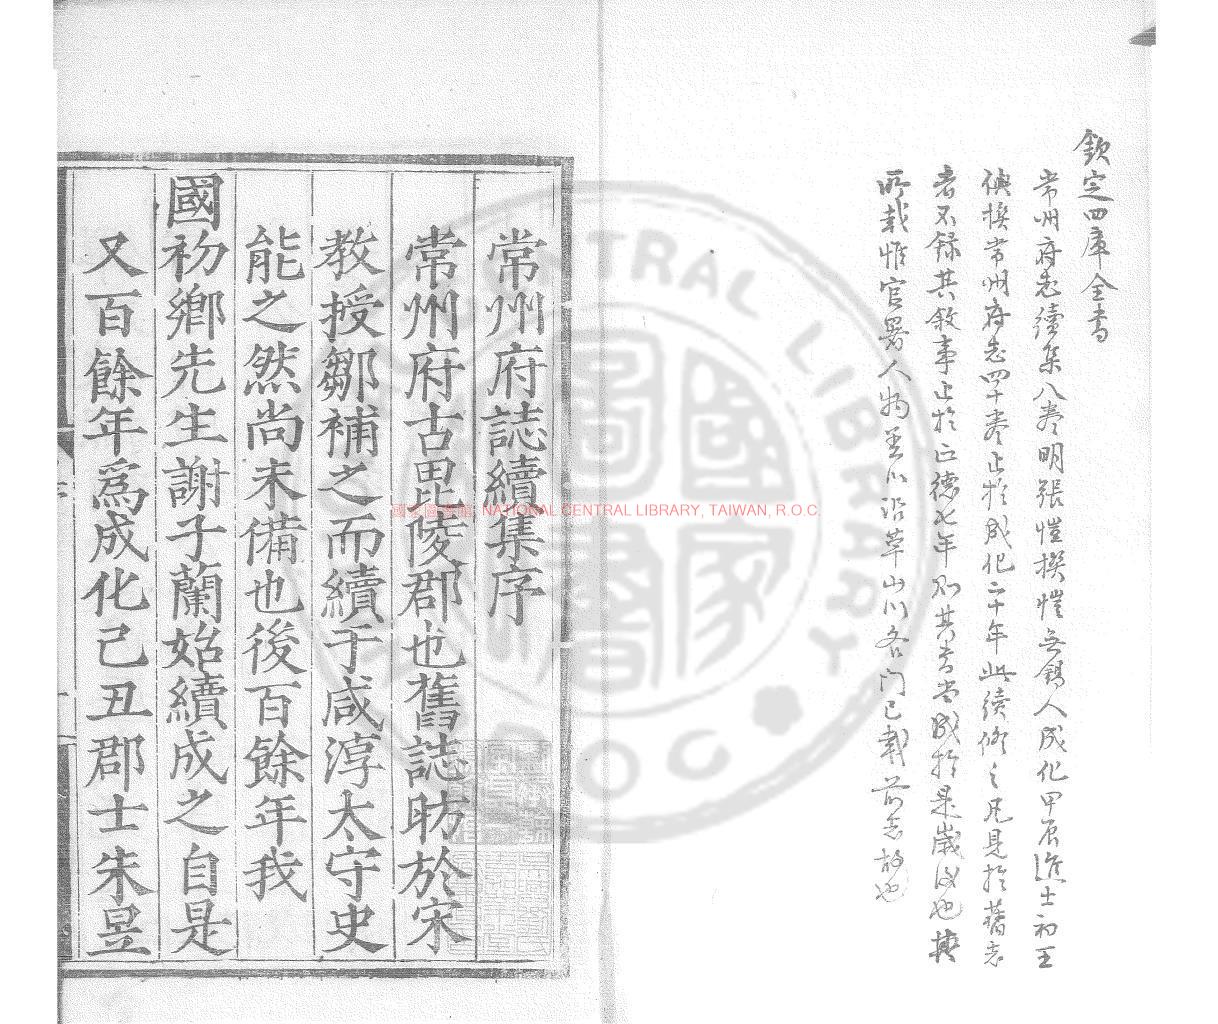 欽定四庫全書
常州府志續集八卷明張愷撰愷無錫人成化甲辰進士初王
㒜撰常州府志四十卷止於成化二十年此續修之凡見於舊志
者不錄其敘事止於正德七年則其書當成於是歲後也其
所載惟官署人物至山川各門已載前志故也
常州府誌續集序
常州府古毘陵郡也舊誌昉於宋
教授鄒補之而續于咸淳太守史
能之然尚未備也後百餘年我
國初鄉先生謝子蘭始續成之自是
又百餘年爲成化己丑郡士朱昱
國家圖書館 NATIONAL CENTRAL LIBRARY, TAIWAN, R.O.C
NATIONAL CENTRAL LIBRARY
R.O.C
國家圖書館